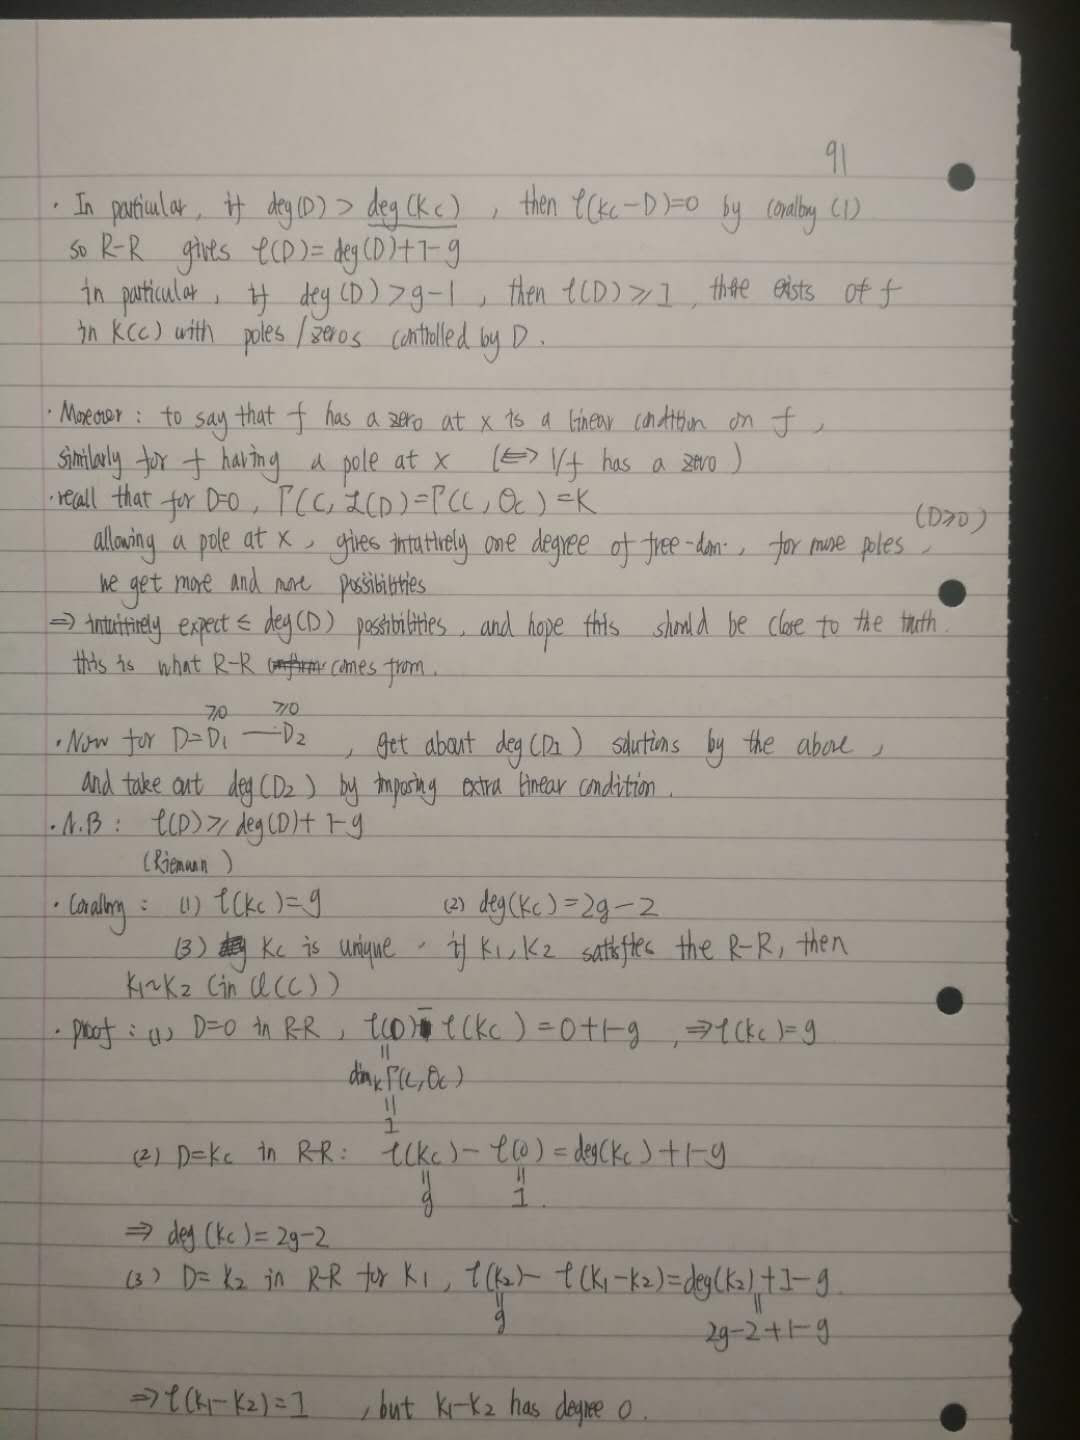 91
· In particular, if deg(D) > deg(Kc), then ℓ(Kc-D)=0 by corollary (1)
so R-R gives ℓ(D)= deg(D)+1-g
in particular, if deg(D)>g-1, then ℓ(D)≥1, there exists of f
in K(C) with poles/zeros controlled by D.
· Moreover: to say that f has a zero at x is a linear condition on f,
similarly for f having a pole at x (⟺ 1/f has a zero)
· recall that for D=0, Γ(C, L(D)=Γ(C, Oc)=K
(D≥0)
allowing a pole at x, gives intuitively one degree of free-dom., for more poles,
we get more and more possibilities
⇒ intuitively expect ≤ deg(D) possibilities, and hope this should be close to the truth.
this is what R-R comes from.
≥0 ≥0
· Now for D=D1 — D2, get about deg(D1) solutions by the above,
and take out deg(D2) by imposing extra linear condition.
· N.B: ℓ(D)≥deg(D)+1-g
(Riemann)
· Corollary: (1) ℓ(Kc)=g (2) deg(Kc)=2g-2
(3) Kc is unique. if K1, K2 satisfies the R-R, then
K1~K2 (in Cl(C))
· proof: (1) D=0 in R-R, ℓ(0)-ℓ(Kc)=0+1-g, ⇒ℓ(Kc)=g
||
dimK Γ(C,Oc)
||
1
(2) D=Kc in R-R: ℓ(Kc)-ℓ(0)=deg(Kc)+1-g
|| ||
g 1.
⇒ deg(Kc)=2g-2
(3) D=K2 in R-R for K1, ℓ(K2)-ℓ(K1-K2)=deg(K2)+1-g.
|| ||
g 2g-2+1-g
⇒ℓ(K1-K2)=1, but K1-K2 has degree 0.